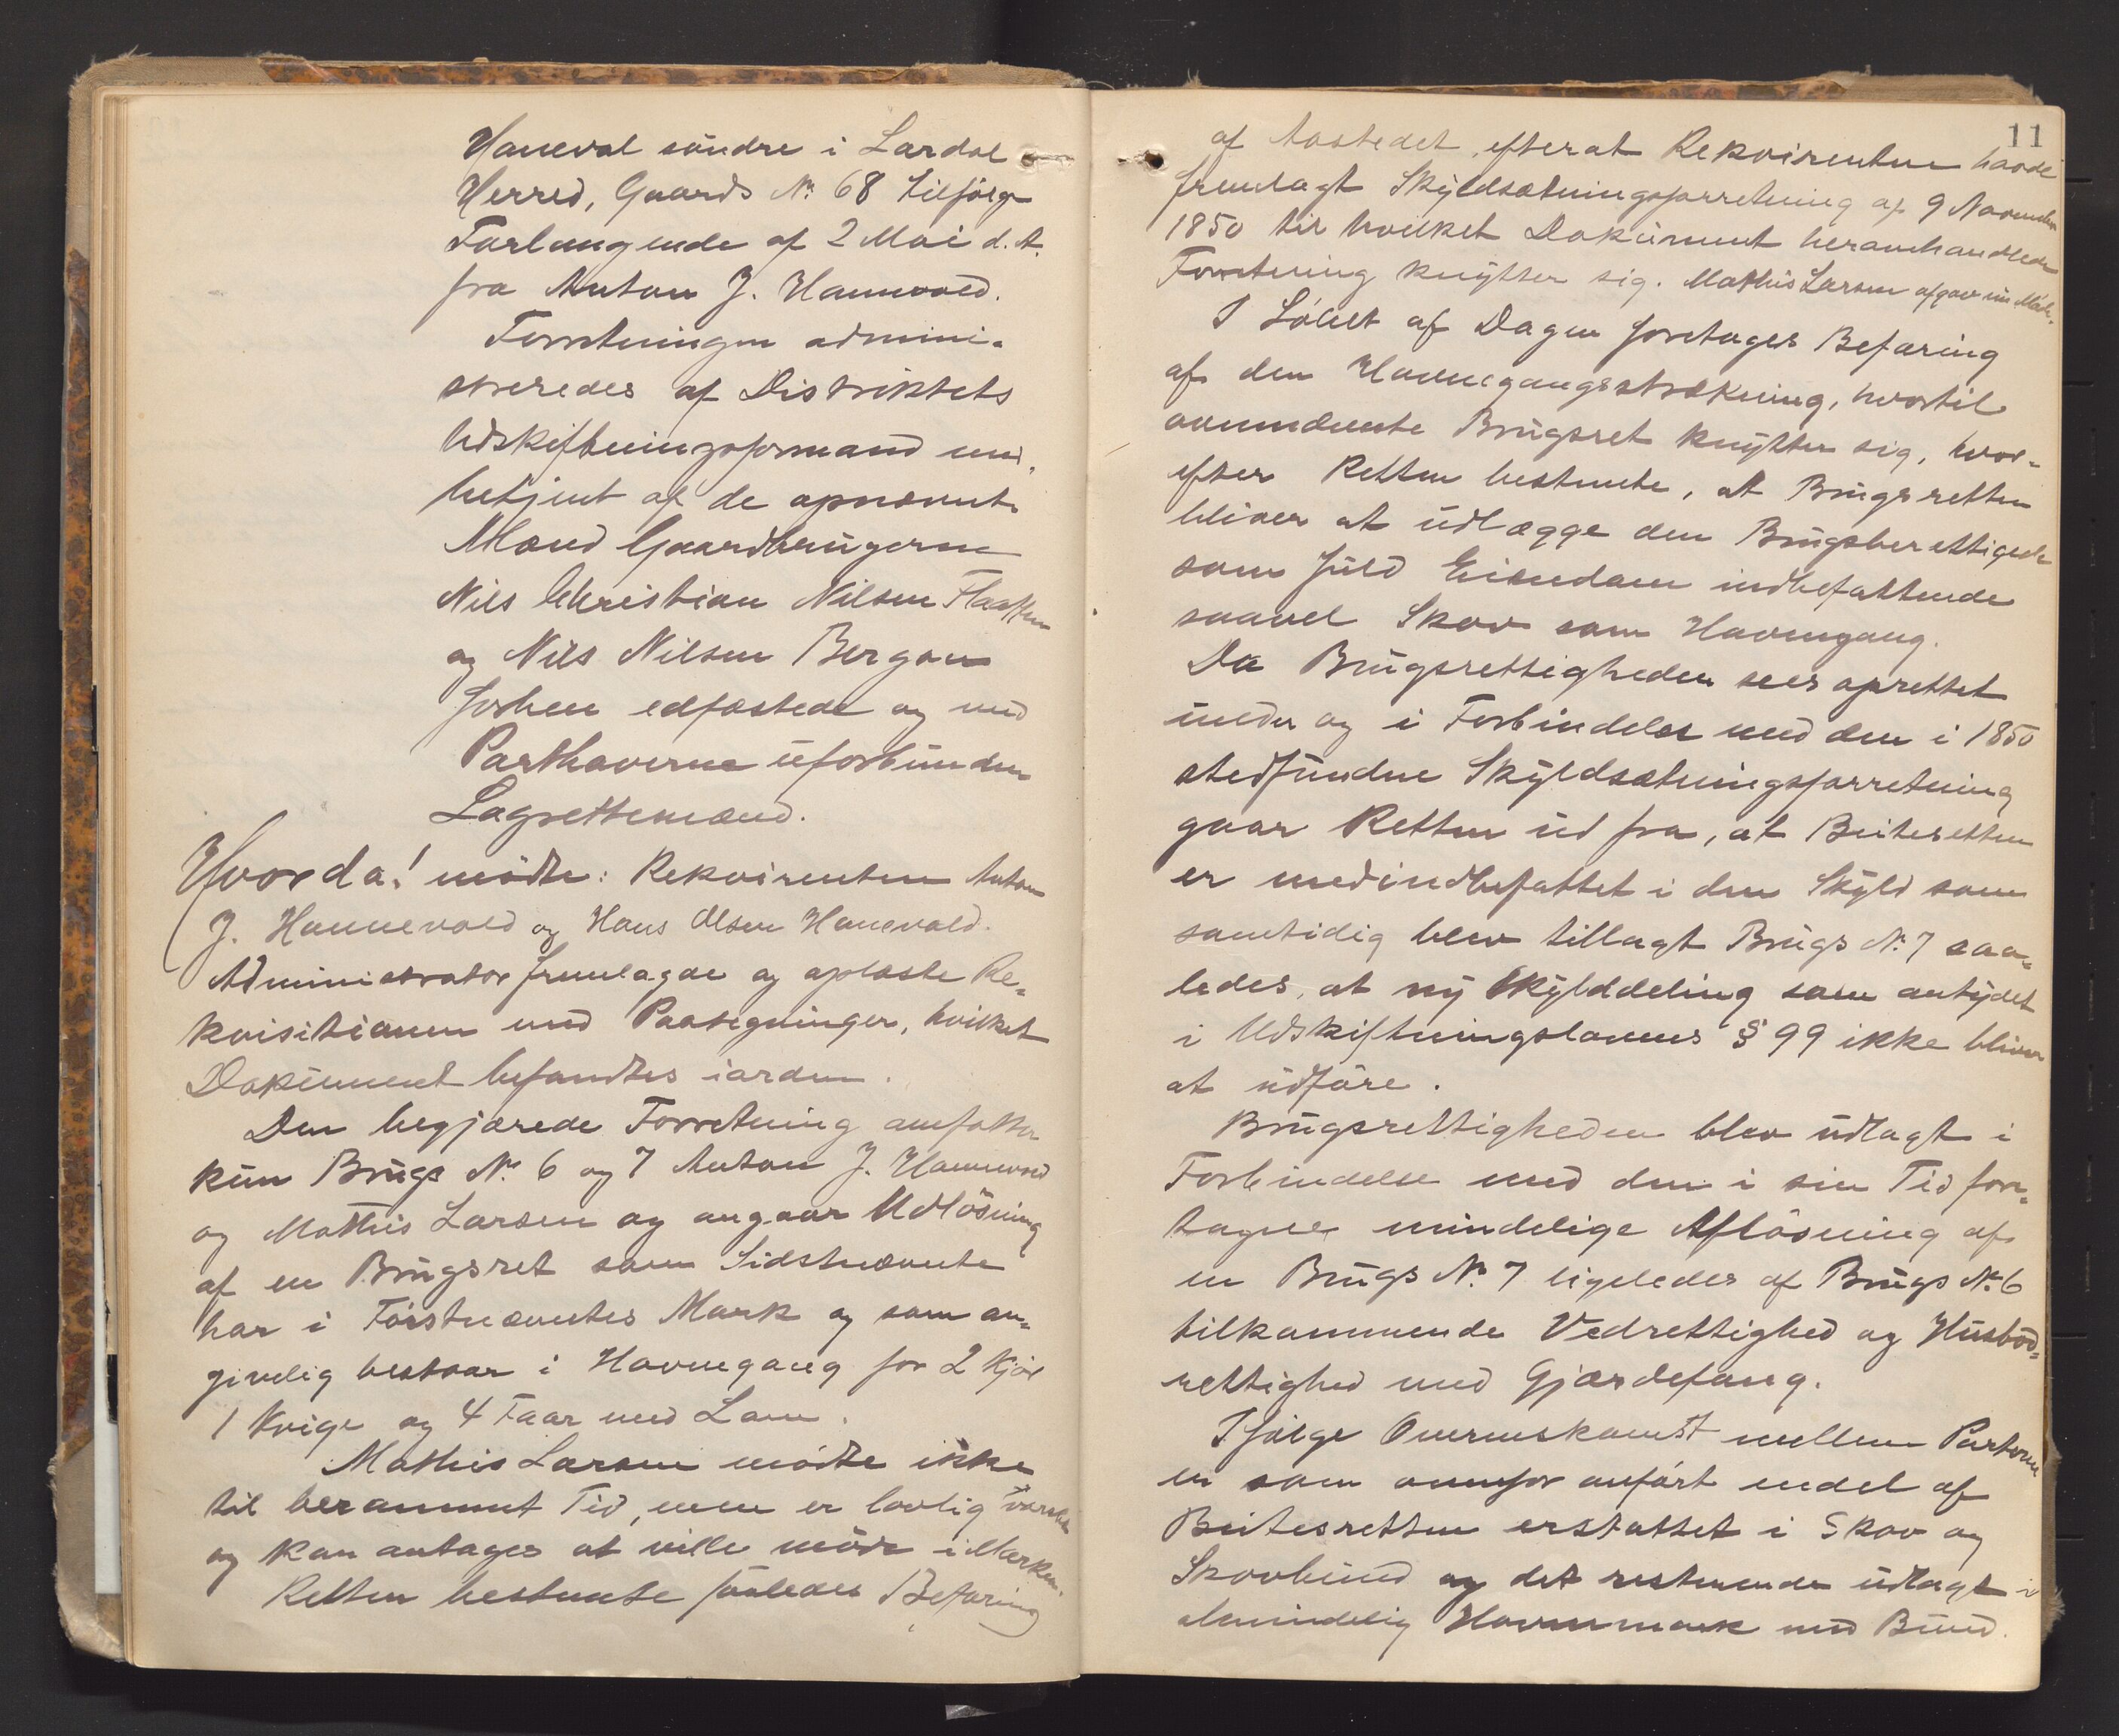 Haneval söndre i Lardal
Herred, Gaards No 68 tilfölge
Forlangende af 2 Mai d. A.
fra Anton J. Hannevold.
Forretningen admini-
streredes af Distriktets
Udskiftningsformand med,
betjent af de opnævnte
Mænd Gaardbrugerne
Nils Christian Nilsen Flaatten
og Nils Nilsen Bergan
Forhen edfæstede og med
Parthaverne uforbundne
Lagrettemænd.
Hvorda! mödte: Rekvirenten Anton
J. Hannevold og Hans Olsen Hanevold.
Administrator fremlagde og oplæste Re-
kvisitionen med Paategninger, hvilket
Dokument befandtes iorden.
Den begjærede Forretning omfatter
kun Brugs No 6 og 7 Anton J. Hannevold
og Mathis Larsen og angaar Udlösning
af en Brugsret som Sidstnævnte
har i Förstnævntes Mark og som an-
givelig bestaar i Havnegang for 2 Kjör
1 Kvige og 4 Faar med Lam.
Mathis Larsen mödte ikke
til berammet Tid, men er lovlig varslet
og kan antages at ville möde i Marken.
Retten bestemte saaledes Befaring
11
af Aastedet efterat Rekvirenten havde
fremlagt Skyldsætningsforretning af 9 November
1850 til hvilket Dokument heromhandlede
Forretning knytter sig. Mathis Larsen afgav nu Möde.
I Löbet af Dagen foretages Befaring
af den Havnegangsstrækning, hvortil
ovennævnte Brugsret knytter sig, hvor-
efter Retten bestemte, at Brugsretten
bliver at udlægge den Brugsberettigede
som fuld Eiendom indbefattende
saavel Skov som Havnegang.
Da Brugsrettigheden sees oprettet
under og i Forbindelse med den i 1850
stedfundne Skyldsætningsforretning
gaar Retten ud fra, at Beitesretten
er medindbefattet i den Skyld som
samtidig blev tillagt Brugs No 7 saa-
ledes, at ny Skylddeling som antydet
i Udskiftningslovens § 99 ikke bliver
at udföre.
Brugsrettigheden blev udlagt i
Forbindelse med den i sin Tid fore-
tagne mindelige Aflösning af
en Brugs No 7 ligeledes af Brugs No 6
tilkommende Vedrettighed og Husbod-
rettighed med Gjærdefang.
Ifölge Overenskomst mellem Parterne
er som ovenfor anfört endel af
Beitesretten erstattet i Skov og
Skovbund og det resterende udlagt i
almindelig Havnemark med Bund.